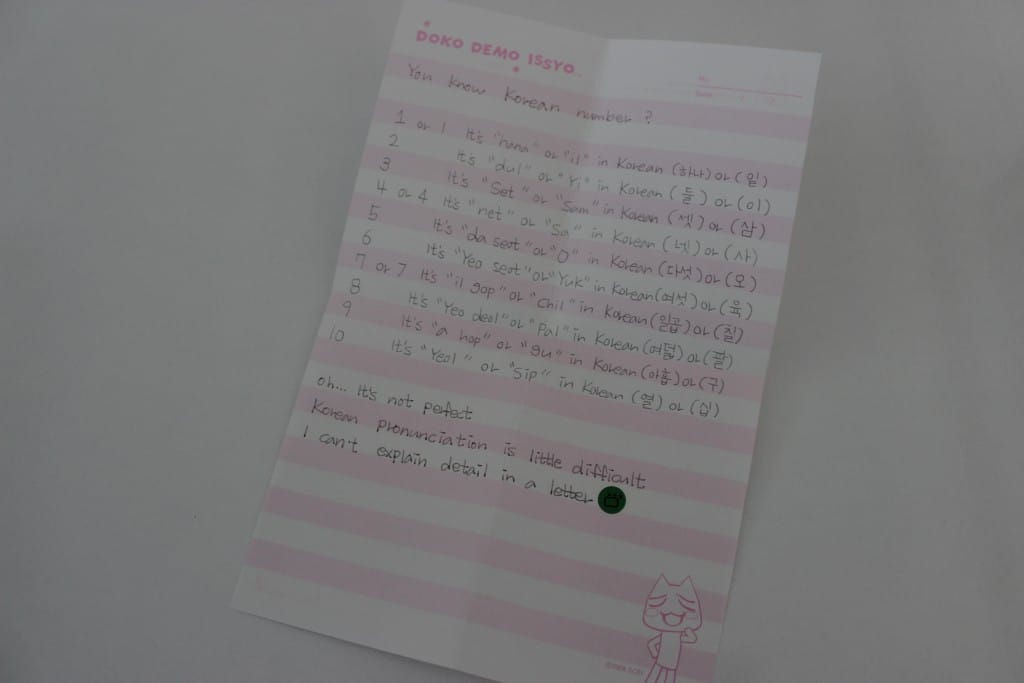 DOKO DEMO ISSYO
No.
Date
You know Korean number ?
1 or 1 It's "hana" or "il" in Korean (하나) or (일)
2 It's "dul" or "Yi" in Korean (둘) or (이)
3 It's "Set" or "Sam" in Korean (셋) or (삼)
4 or 4 It's "net" or "Sa" in Korean (넷) or (사)
5 It's "da seot" or "O" in Korean (다섯) or (오)
6 It's "Yeo seot" or "Yuk" in Korean (여섯) or (육)
7 or 7 It's "il gop" or "Chil" in Korean (일곱) or (칠)
8 It's "Yeo deol" or "Pal" in Korean (여덟) or (팔)
9 It's "a hop" or "gu" in Korean (아홉) or (구)
10 It's "Yeol" or "Sip" in Korean (열) or (십)
oh... It's not perfect
Korean pronunciation is little difficult
I can't explain detail in a letter